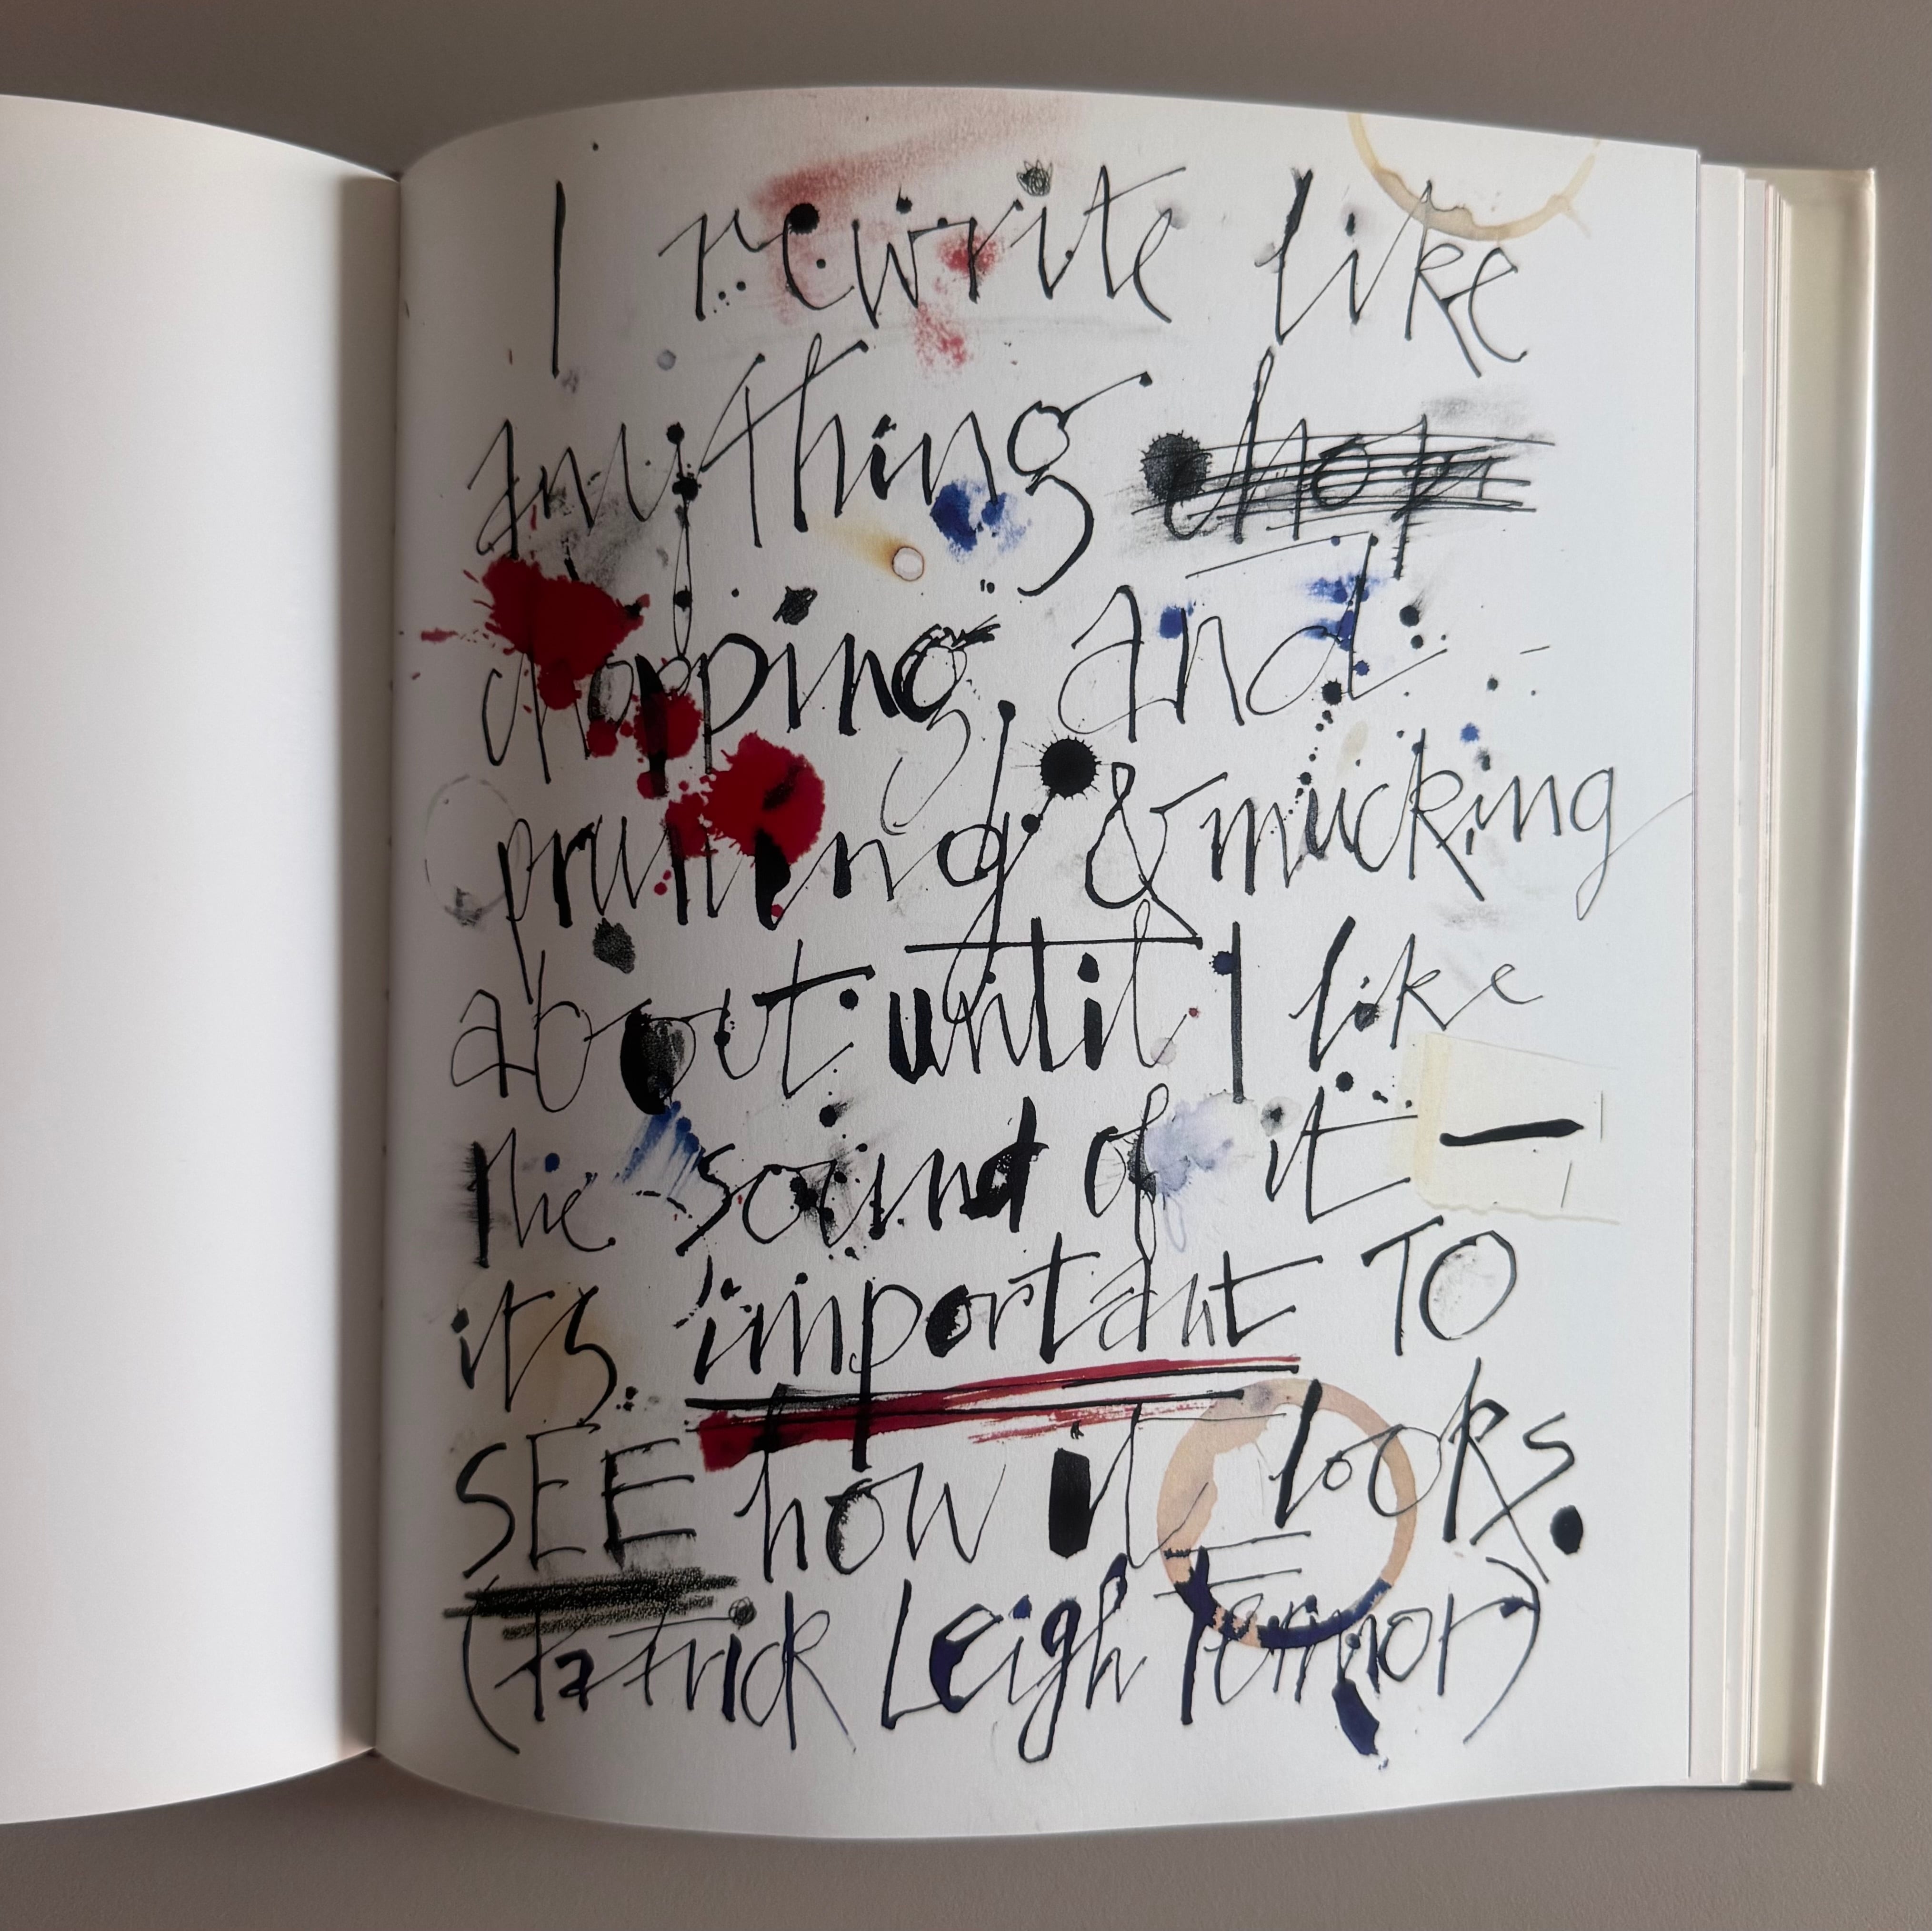 I rewrite like
anything chop
chopping, and
pruning & mucking
about until I like
the sound of it —
its important TO
SEE how it looks.
(Patrick Leigh Fermor)